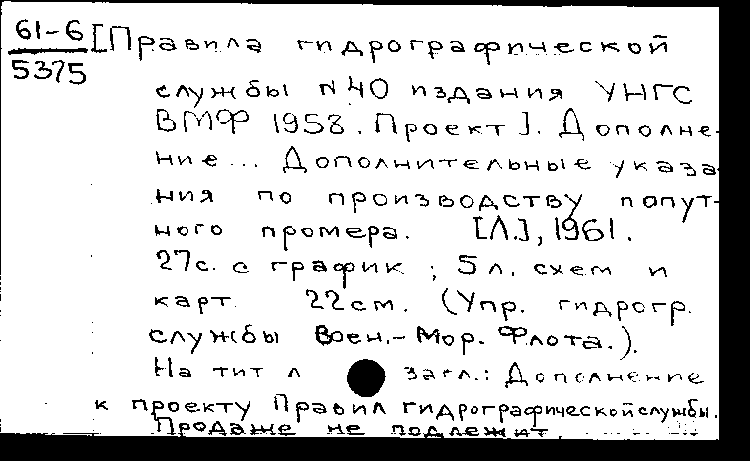 61-6
5375
[Правила гидрографической
службы N 40 издания УНГС
ВМФ 1958. Проект]. Дополне-
ние... Дополнительные указа-
ния по производству попут-
ного промера. [Л.], 1961.
27с. с график ; 5 л. схем и
карт. 22см. (Упр. гидрогр.
службы Воен.-Мор. Флота.).
На тит л загл.: Дополнение
к проекту Правил гидрографической службы.
Продаже не подлежит.